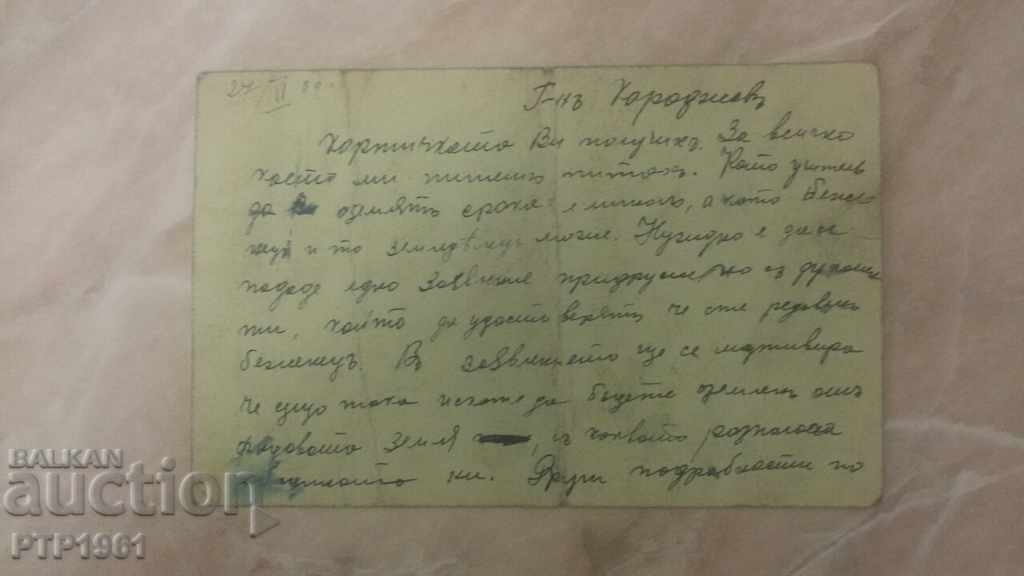 27 II
Г-нъ Хараджиевъ
Картичката Ви получих. За всичко
което ми пишешъ питахъ. Като учител
да оземлятъ срока е миналъ, а като бежа
нецъ и то земледелецъ може. Нуждно е да се
подаде едно заявление придружено съ докумен
ти, които да удостоверятъ че сте редовенъ
бежанецъ. Въ заявлението ще се мотивира
че също така искате да бъдете оземлен отъ
фондовата земля, съ каквато разполага
ни. Други подробности по
BALKAN
auction
PTP1961